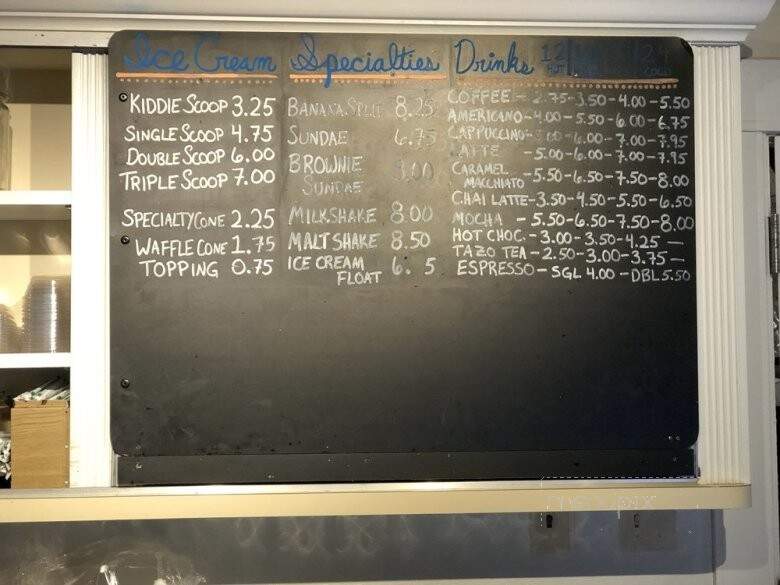 Ice Cream
KIDDIE SCOOP 3.25
SINGLE SCOOP 4.75
DOUBLE SCOOP 6.00
TRIPLE SCOOP 7.00
SPECIALTY CONE 2.25
WAFFLE CONE 1.75
TOPPING 0.75
Specialties
BANANA SPLIT 8.25
SUNDAE 6.75
BROWNIE
SUNDAE
MILKSHAKE 8.00
MALT SHAKE 8.50
ICE CREAM
FLOAT
Drinks 12 24
HOT COLD
COFFEE - 2.75 - 3.50 - 4.00 - 5.50
AMERICANO - 4.00 - 5.50 - 6.00 - 6.75
CAPPUCCINO - 6.00 - 7.00 - 7.95
LATTE - 5.00 - 6.00 - 7.00 - 7.95
CARAMEL
MACCHIATO - 5.50 - 6.50 - 7.50 - 8.00
CHAI LATTE - 3.50 - 4.50 - 5.50 - 6.50
MOCHA - 5.50 - 6.50 - 7.50 - 8.00
HOT CHOC. - 3.00 - 3.50 - 4.25 -
TAZO TEA - 2.50 - 3.00 - 3.75 -
ESPRESSO - SGL 4.00 - DBL 5.50